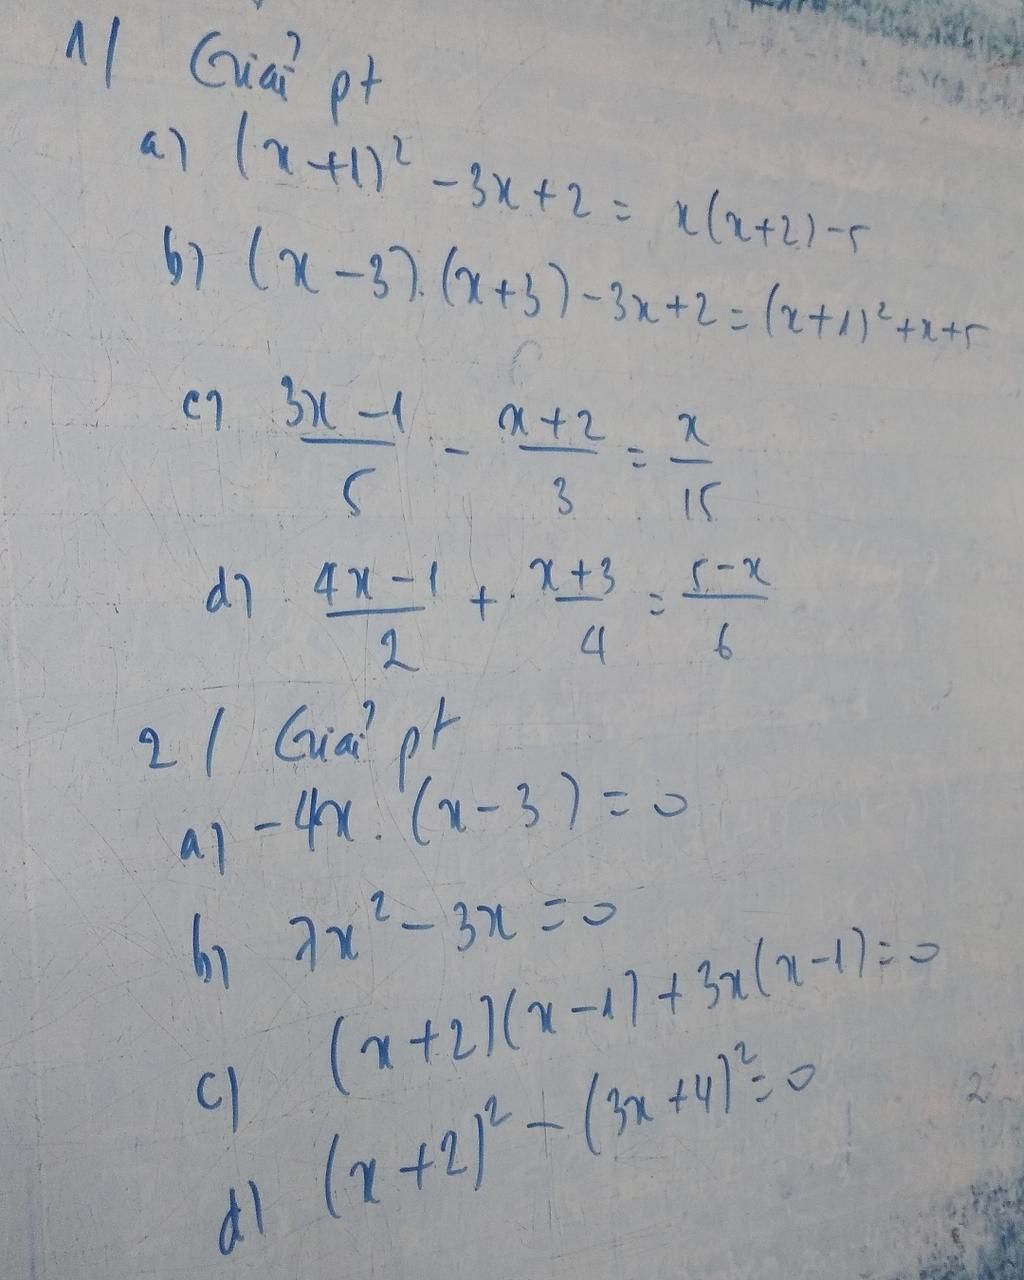 1/ Giải pt
a) (x+1)² - 3x + 2 = x(x+2) - 5
b) (x-3).(x+3) - 3x + 2 = (x+1)² + x + 5
c) (3x-1)/5 - (x+2)/3 = x/15
d) (4x-1)/2 + (x+3)/4 = (5-x)/6
2/ Giải pt
a) -4x.(x-3) = 0
b) 7x² - 3x = 0
c) (x+2)(x-1) + 3x(x-1) = 0
d) (x+2)² - (3x+4)² = 0